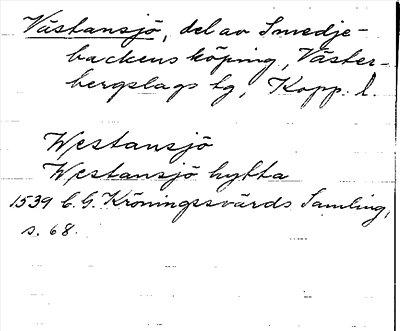 Västansjö, del av Smedje-
backens köping, Väster-
bergslags tg, Kopp. l.
Westansjö
Westansjö hytta
1539 C. G. Kröningssvärds Samling,
s. 68.